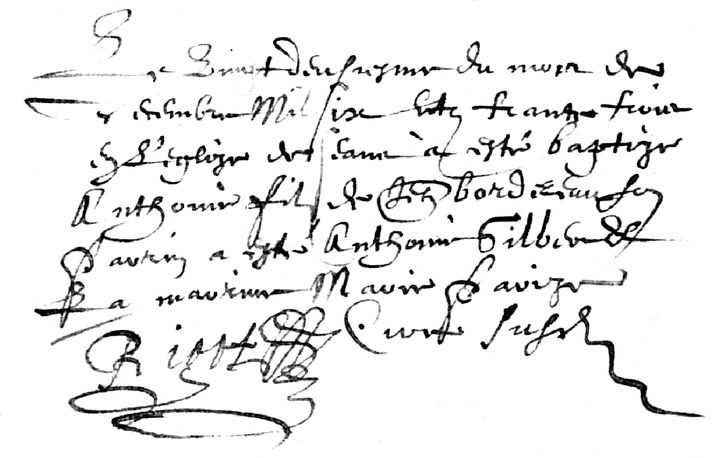 Le Vingt deuhiesme du mois de
decembre Mil six cents trante trois
en L'eglize de Jeanne a esté baptize
Anthoine fils de bordereau son
parrin a esté Anthoine Gilbert &
La marinne Marie Parize
Riott Curé susd